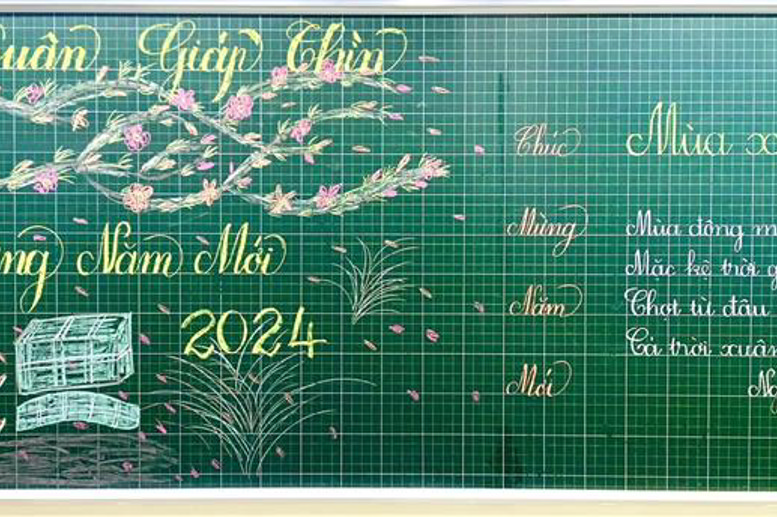 uân Giáp Thìn
ng Năm Mới
2024
Chúc
Mừng
Năm
Mới
Mùa x
Mùa đông m
Mặc kệ trời g
Chợt từ đâu
Cả trời xuân
Ng